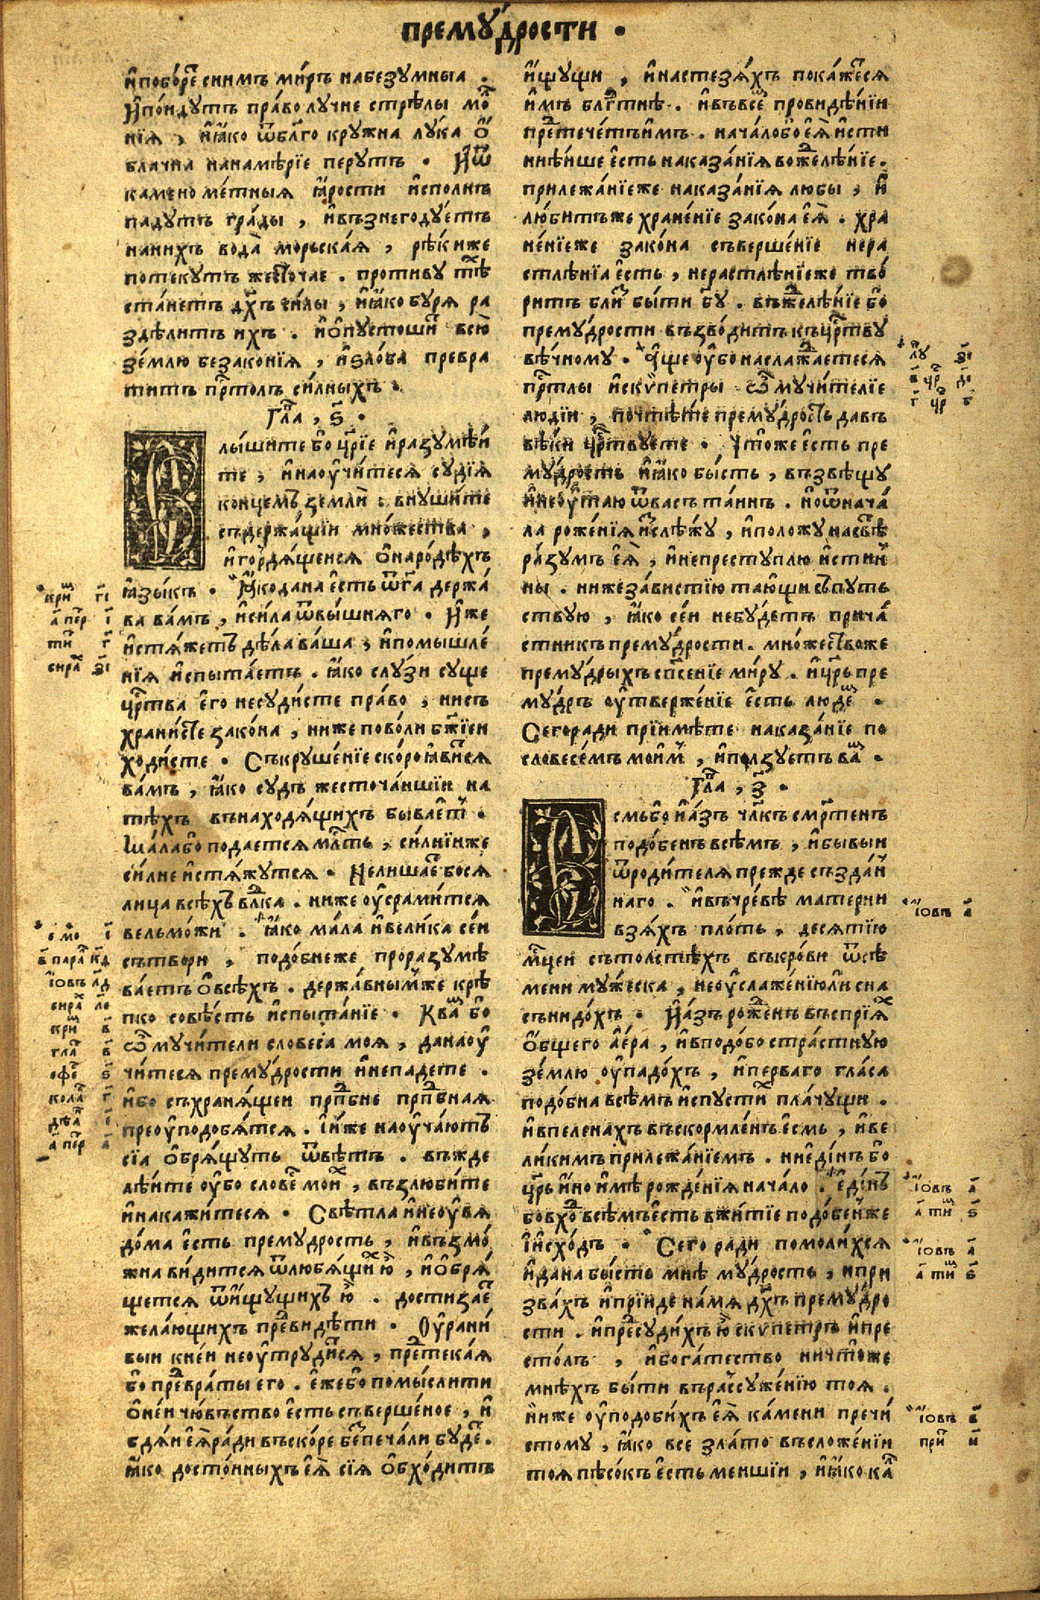 премꙋ́дрости .
и҆побо́рет снимъ ми́ръ набезумныѧ .
И҆по́идутъ пра́во лучше стрѣлы мо́л
нїѧ , ꙗ҆́ко ѿ бл҃го кружна лꙋка ѻ҆́
блачна нанамѣ́рїе перутъ . И҆ѿ
камено ме́тныѧ ꙗ҆́рости и҆сполнь
падꙋтъ гра́ды , и҆възнегодꙋетъ
нанихъ вода̀ морьска́ѧ , рѣки же
потекꙋтъ жесточае . противу тѣ́м
ста́нетъ дх҃ъ си́лы , ꙗ҆́ко бурѧ ра
здѣ́литъ ихъ . и҆ѻ҆пустоши́т всю̀
зе́млю безако́нїѧ , и҆ѕло́ба превра
титъ прⷭ҇толъ си́лныхъ .
Гла́ , ѕ҃ .
Слы́шите бо цр҃їе и҆разꙋмѣ́и
те , и҆наꙋчи́тесѧ сꙋдїѧ
конце́мъ земли : внꙋши́те
съдержа́щїи мно́жества ,
и҆гордѧ́щеисѧ ѻ҆наро́дѣхъ
ꙗ҆зы́къ . Ꙗ҆́кодана є҆сть ѿгⷭ҇а держа́
ва ва́мъ , и҆си́ла ѿвы́шнѧго . И҆́же
и҆стѧ́жетъ дѣ́ла ва́ша , и҆помышле́
нїѧ и҆спыта́етъ . ꙗ҆́ко слуѕи сꙋще
црⷭ҇тва є҆го̀ несꙋди́сте пра́во , нисъ
храни́сте зако́на , ниже пово́ли бж҃їеи
ходи́сте . Съкрꙋше́нїе ско́ро ꙗ҆ви́тсѧ
ва́мъ , ꙗ҆́ко сꙋдъ жесточа́ишїи на
тѣ́хъ внаходѧ́щихъ быва́ет .
Мала́бо подае́тсѧ млⷭ҇ть , си́лнїиже
си́лне и҆стѧ́жꙋтсѧ . Нелиша́ет босѧ
лица всѣ́хъ влⷣка . ниже оу҆срами́тсѧ
вельмо́жи . ꙗ҆́ко ма́ла и҆вели́ка се́и
сътвори , подо́бнеже проразꙋмѣ
ва́етъ ѻ҆всѣ́хъ . держа́внымже крѣ́
пко совѣ́сть и҆спыта́нїе . Квам бо
ѽ мꙋчи́тели словеса̀ моѧ̀ , данаꙋ
чи́тесѧ премꙋ́дрости и҆непаде́те .
и҆́бо съхранѧ́щеи прпⷣбне прпⷣбнаѧ
преꙋподо́бѧтсѧ . І҆и҆́же наꙋча́ютъ
сїѧ ѻ҆брѧ́щꙋтъ ѿвѣ́тъ . въжде
лѣ́ите оу҆́бо слове́м мои́м , възлюби́те
и҆нака́житесѧ . Свѣтла и҆неꙋвѧ
до́ма є҆сть премꙋ́дрость , и҆възмо́
жна ви́дитсѧ ѿлюбѧ́щих ю̀ , и҆ѻ҆брѧ́
щетсѧ ѿи҆́щꙋщихъ ю̀ . достиза́ет
жела́ющихъ превⷣи́дѣти . Оу҆́рании
выи кне́и неꙋтрꙋди́тсѧ , претека́ѧ
бо превⷣраты его . є҆́жебо помы́слити
ѻ҆не́и чю́въство є҆сть съверше́ное , и҆
бдѧ́и є҆ѧ̀ра́ди въско́ре бес печа́ли бꙋ́дет .
ꙗ҆́ко досто́иныхъ є҆ѧ̀ сїѧ̀ ѻ҆бхо́дитъ
и҆́щꙋщи , и҆настезѧ́хъ пока́жетсѧ
и҆́мъ блгⷭ҇тнѣ . и҆въвсе́м провидѣ́нїи
прⷣетече́тъи҆мъ . нача́лобо є҆ѧ̀ и҆́сти
ннѣ́ише є҆сть наказа́нїѧ вожделѣ́нїе .
прилежа́нїеже наказа́нїѧ любы̀ , и҆
люби́тъже хране́нїе зако́на є҆ѧ̀ . хра
не́нїеже зако́на съверше́нїе нера
стлѣ́нїѧ є҆сть , нерастлѣ́нїеже тво́
ритъ бли́з бы́ти бг҃ꙋ . въжделѣ́нїе бо
премꙋ́дрости възво́дитъ къцрⷭ҇твꙋ
вѣ́чномꙋ . А҆́ще оу҆́бо наслажда́етесѧ
прⷭ҇тлы и҆скѵ́петры ѽ мꙋчи́телїе
лю́дїи , почти́те премꙋ́дрость давъ
вѣ́ки црⷭ҇твꙋете . Что́же є҆сть пре
мꙋ́дрость и҆ꙗ҆́ко бы́сть , възвѣщꙋ̀
и҆неꙋтаю̀ ѿва́съ та́инъ . но ѿнача́
ла роже́нїѧ и҆слѣ́жꙋ , и҆положꙋ̀ насвѣ́т
ра́зꙋмъ є҆ѧ̀ , и҆непреступлю̀ и҆́стин
ны . нижеза́вистїю та́ющи съпꙋть
ствꙋю , ꙗ҆́ко се́и небꙋ́детъ прича́
стникъ премꙋ́дрости . мно́жествоже
премꙋ́дрыхъ спⷭ҇е́нїе ми́рꙋ . и҆црь҃ пре
мꙋ́дръ оу҆тверже́нїе є҆сть лю́дем .
Сегора́ди прїимѣ́те наказа́нїе по
словесе́мъ мои́м , и҆ползꙋетъ вас .
Гла́ , з҃ .
Є҆смьбо и҆а҆́зъ чл҃къ сме́ртенъ
подо́бенъ всѣ́мъ , и҆бы́выи
ѿроди́телѧ прежде създан
наго . и҆въчре́вѣ матерни
взѧ́хъ пло́ть , десѧтїю
мцⷭ҇еи сътолстѣ́хъ въкро́ви ѿсѣ́
мени мꙋ́жеска , неꙋслаже́нїюли сна
съни́дохъ . И҆а҆́зъ рожⷣе́нъ въсприѧх
ѻ҆́бщего ае҆́ра , и҆вподо́бостра́стнꙋю
зе́млю оу҆падо́хъ , и҆пе́рваго гла́са
подо́бна всѣ́мъ и҆спусти́х пла́чꙋщи .
и҆впелена́хъ въскормле́нъ є҆смь , и҆ве
ли́кимъ прилежа́нїемъ . ниеди́нъ бо
црь҃ и҆́но и҆мѣ̀ рожде́нїѧ нача́ло . є҆ди́нъ
бовхо́д всѣ́мъ є҆сть вжитїе подо́бенже
и҆и҆схо́дъ . Сего ра́ди помоли́хсѧ
и҆дана бы́сть мнѣ̀ мꙋ́дрость , и҆при
зва́хъ и҆прїи́де намѧ̀ дх҃ъ премꙋ́дро
сти . и҆пред̾сꙋди́хъ ю̀ скѵ́петръ и҆пре
сто́лъ , и҆бога́тество ничто́же
мнѣ́хъ бы́ти въразсꙋже́нїю тоѧ̀ .
ниже оу҆подо́бихъ є҆ѧ̀ ка́мени пречи
стомꙋ , ꙗ҆́ко все зла́то въсложе́нїи
тоѧ̀ пѣсо́къ є҆сть меншїи , и҆ꙗ҆́ко ка́л